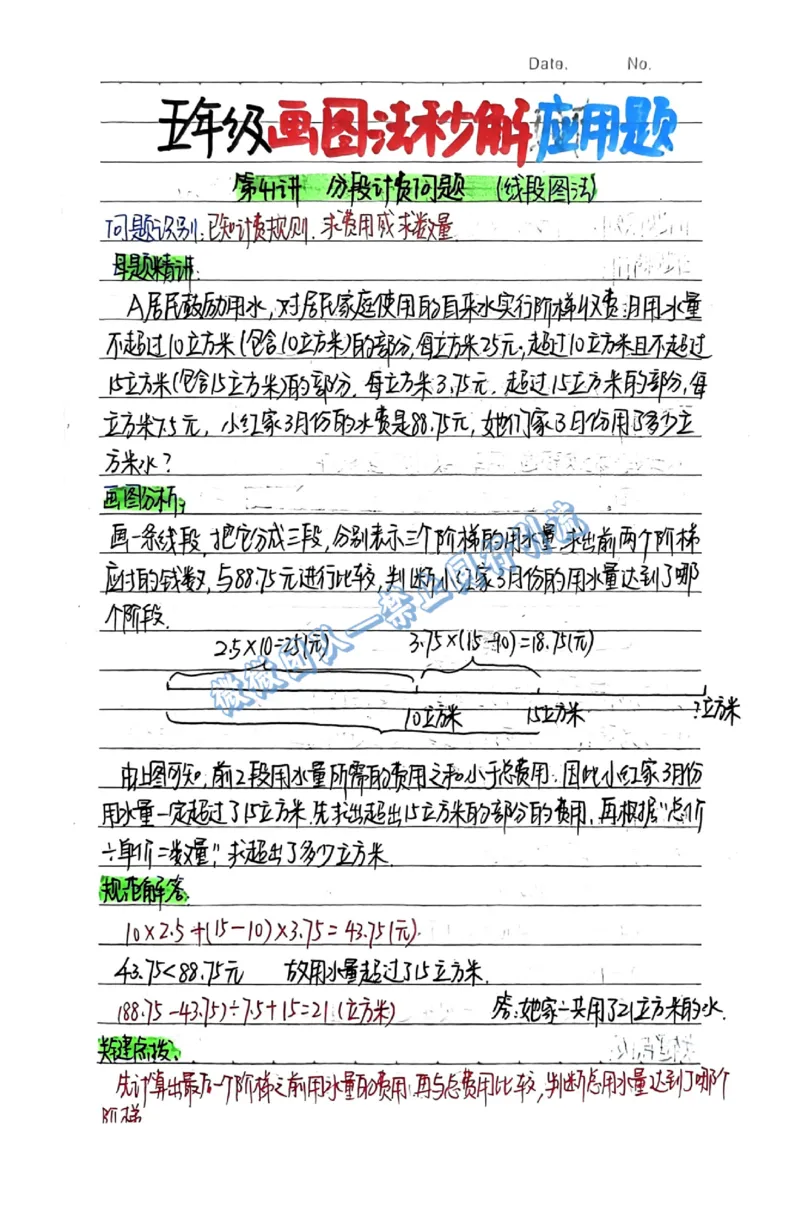 Date.    No.
五年级画图法秒解应用题
第41讲 分段计费问题 (线段图法)
问题识别:已知计费规则.求费用或求数量
母题精讲:
A居民鼓励用水,对居民家庭使用的自来水实行阶梯收费:月用水量
不超过10立方米(包含10立方米)的部分,每立方米2.5元;超过10立方米且不超过
15立方米(包含15立方米)的部分,每立方米3.75元.超过15立方米的部分,每
立方米7.5元,小红家3月份的水费是88.75元,她们家3月份用了多少立
方米水?
画图分析:
画一条线段,把它分成三段,分别表示三个阶梯的用水量.求出前两个阶梯
应付的钱数,与88.75元进行比较,判断小红家3月份的用水量达到了哪
个阶段.
2.5×10=25(元)  3.75×(15-10)=18.75(元)
10立方米  15立方米  ?立方米
由上图可知,前2段用水量所需的费用之和小于总费用.因此小红家3月份
用水量一定超过了15立方米.先求出超出15立方米的部分的费用,再根据“总价
÷单价=数量”,求超出了多少立方米.
规范解答:
10×2.5+(15-10)×3.75=43.75(元).
43.75<88.75元  故用水量超过了15立方米.
(88.75-43.75)÷7.5+15=21(立方米)  答:她家一共用了21立方米的水.
关键点拨:
先计算出最后一个阶梯之前用水量的费用.再与总费用比较,判断总用水量达到了哪个
阶梯
微微团队一禁止同行引流